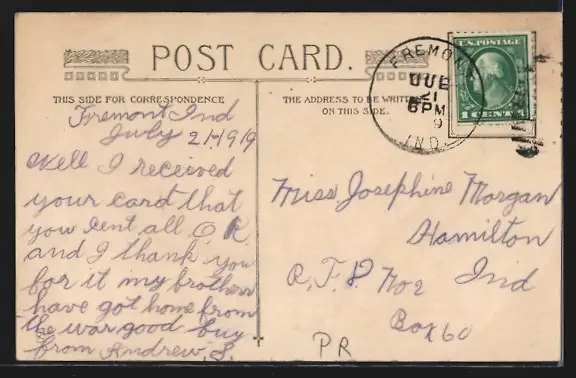 POST CARD.
THIS SIDE FOR CORRESPONDENCE
THE ADDRESS TO BE WRITTEN
ON THIS SIDE.
FREMONT
21
6 PM
9
IND.
U.S. POSTAGE
1 CENT 1
Fremont Ind
July 21-1919
Well I received
your card that
you sent all O.K.
and I thank you
for it my brothers
have got home from
the war good buy
from Andrew, S.
Miss Josephine Morgan
Hamilton
R.F.D No2 Ind
Box 60
PR